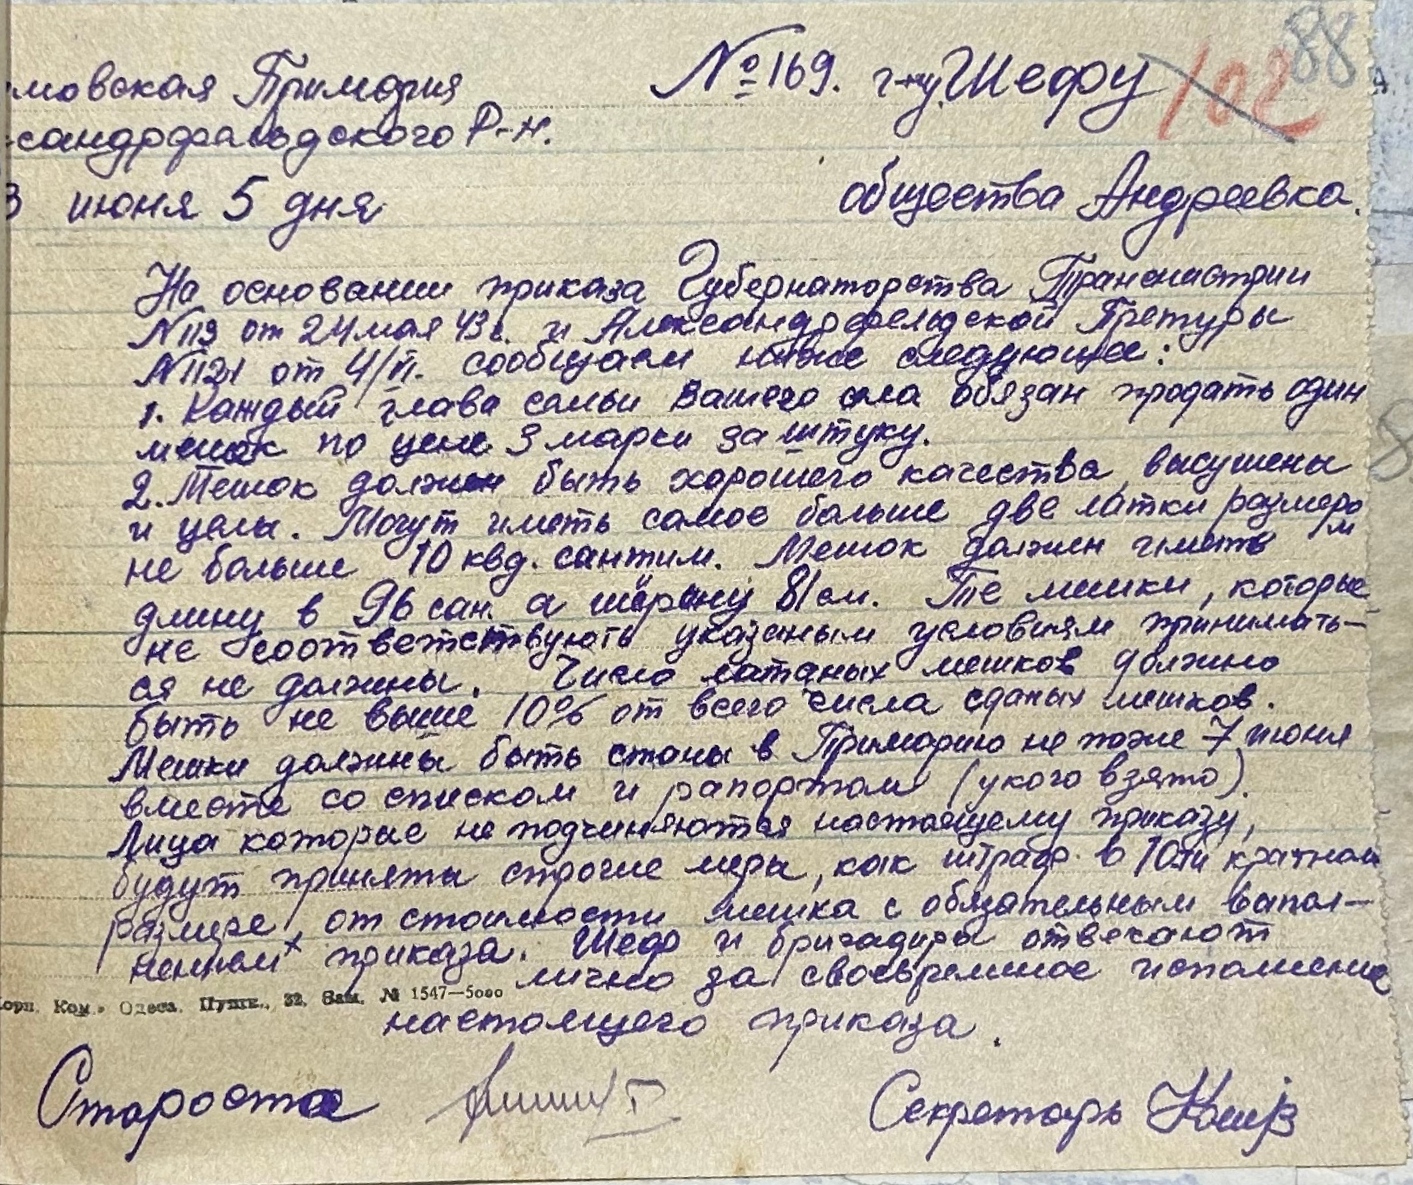 мовская Примария № 169. г-ну. Шефу 102 88
сандрфельдского Р-н.
3 июня 5 дня общества Андреевка.
На основании приказа Губернаторства Транснистрии
N 119 от 24 мая 43 г. и Александрфельдской Претуры
N 1121 от 4/VI. сообщаем ниже следующее:
1. Каждый глава семьи Вашего села обязан продать один
мешок по цене 3 марки за штуку.
2. Мешок должен быть хорошего качества, высушены
и целы. Могут иметь самое больше две латки размером
не больше 10 квд. сантим. Мешок должен иметь
длину в 96 сан. а ширину 81 см. Те мешки, которые
не соответствуют указаным условиям принимать-
ся не должны. Число латаных мешков должно
быть не выше 10% от всего числа сданых мешков.
Мешки должны быть сданы в Примарию не позже 7 июня
вместе со списком и рапортом (у кого взято).
Лица которые не подчиняются настоящему приказу,
будут приняты строгие меры, как штраф в 10ти кратном
размере, от стоимости мешка с обязательным выпол-
нением приказа. Шеф и бригадиры отвечают
лично за своевремное исполнение
Ком. Одеса, Пушк., 32, Зам. № 1547—5000
настоящего приказа.
Староста Секретарь